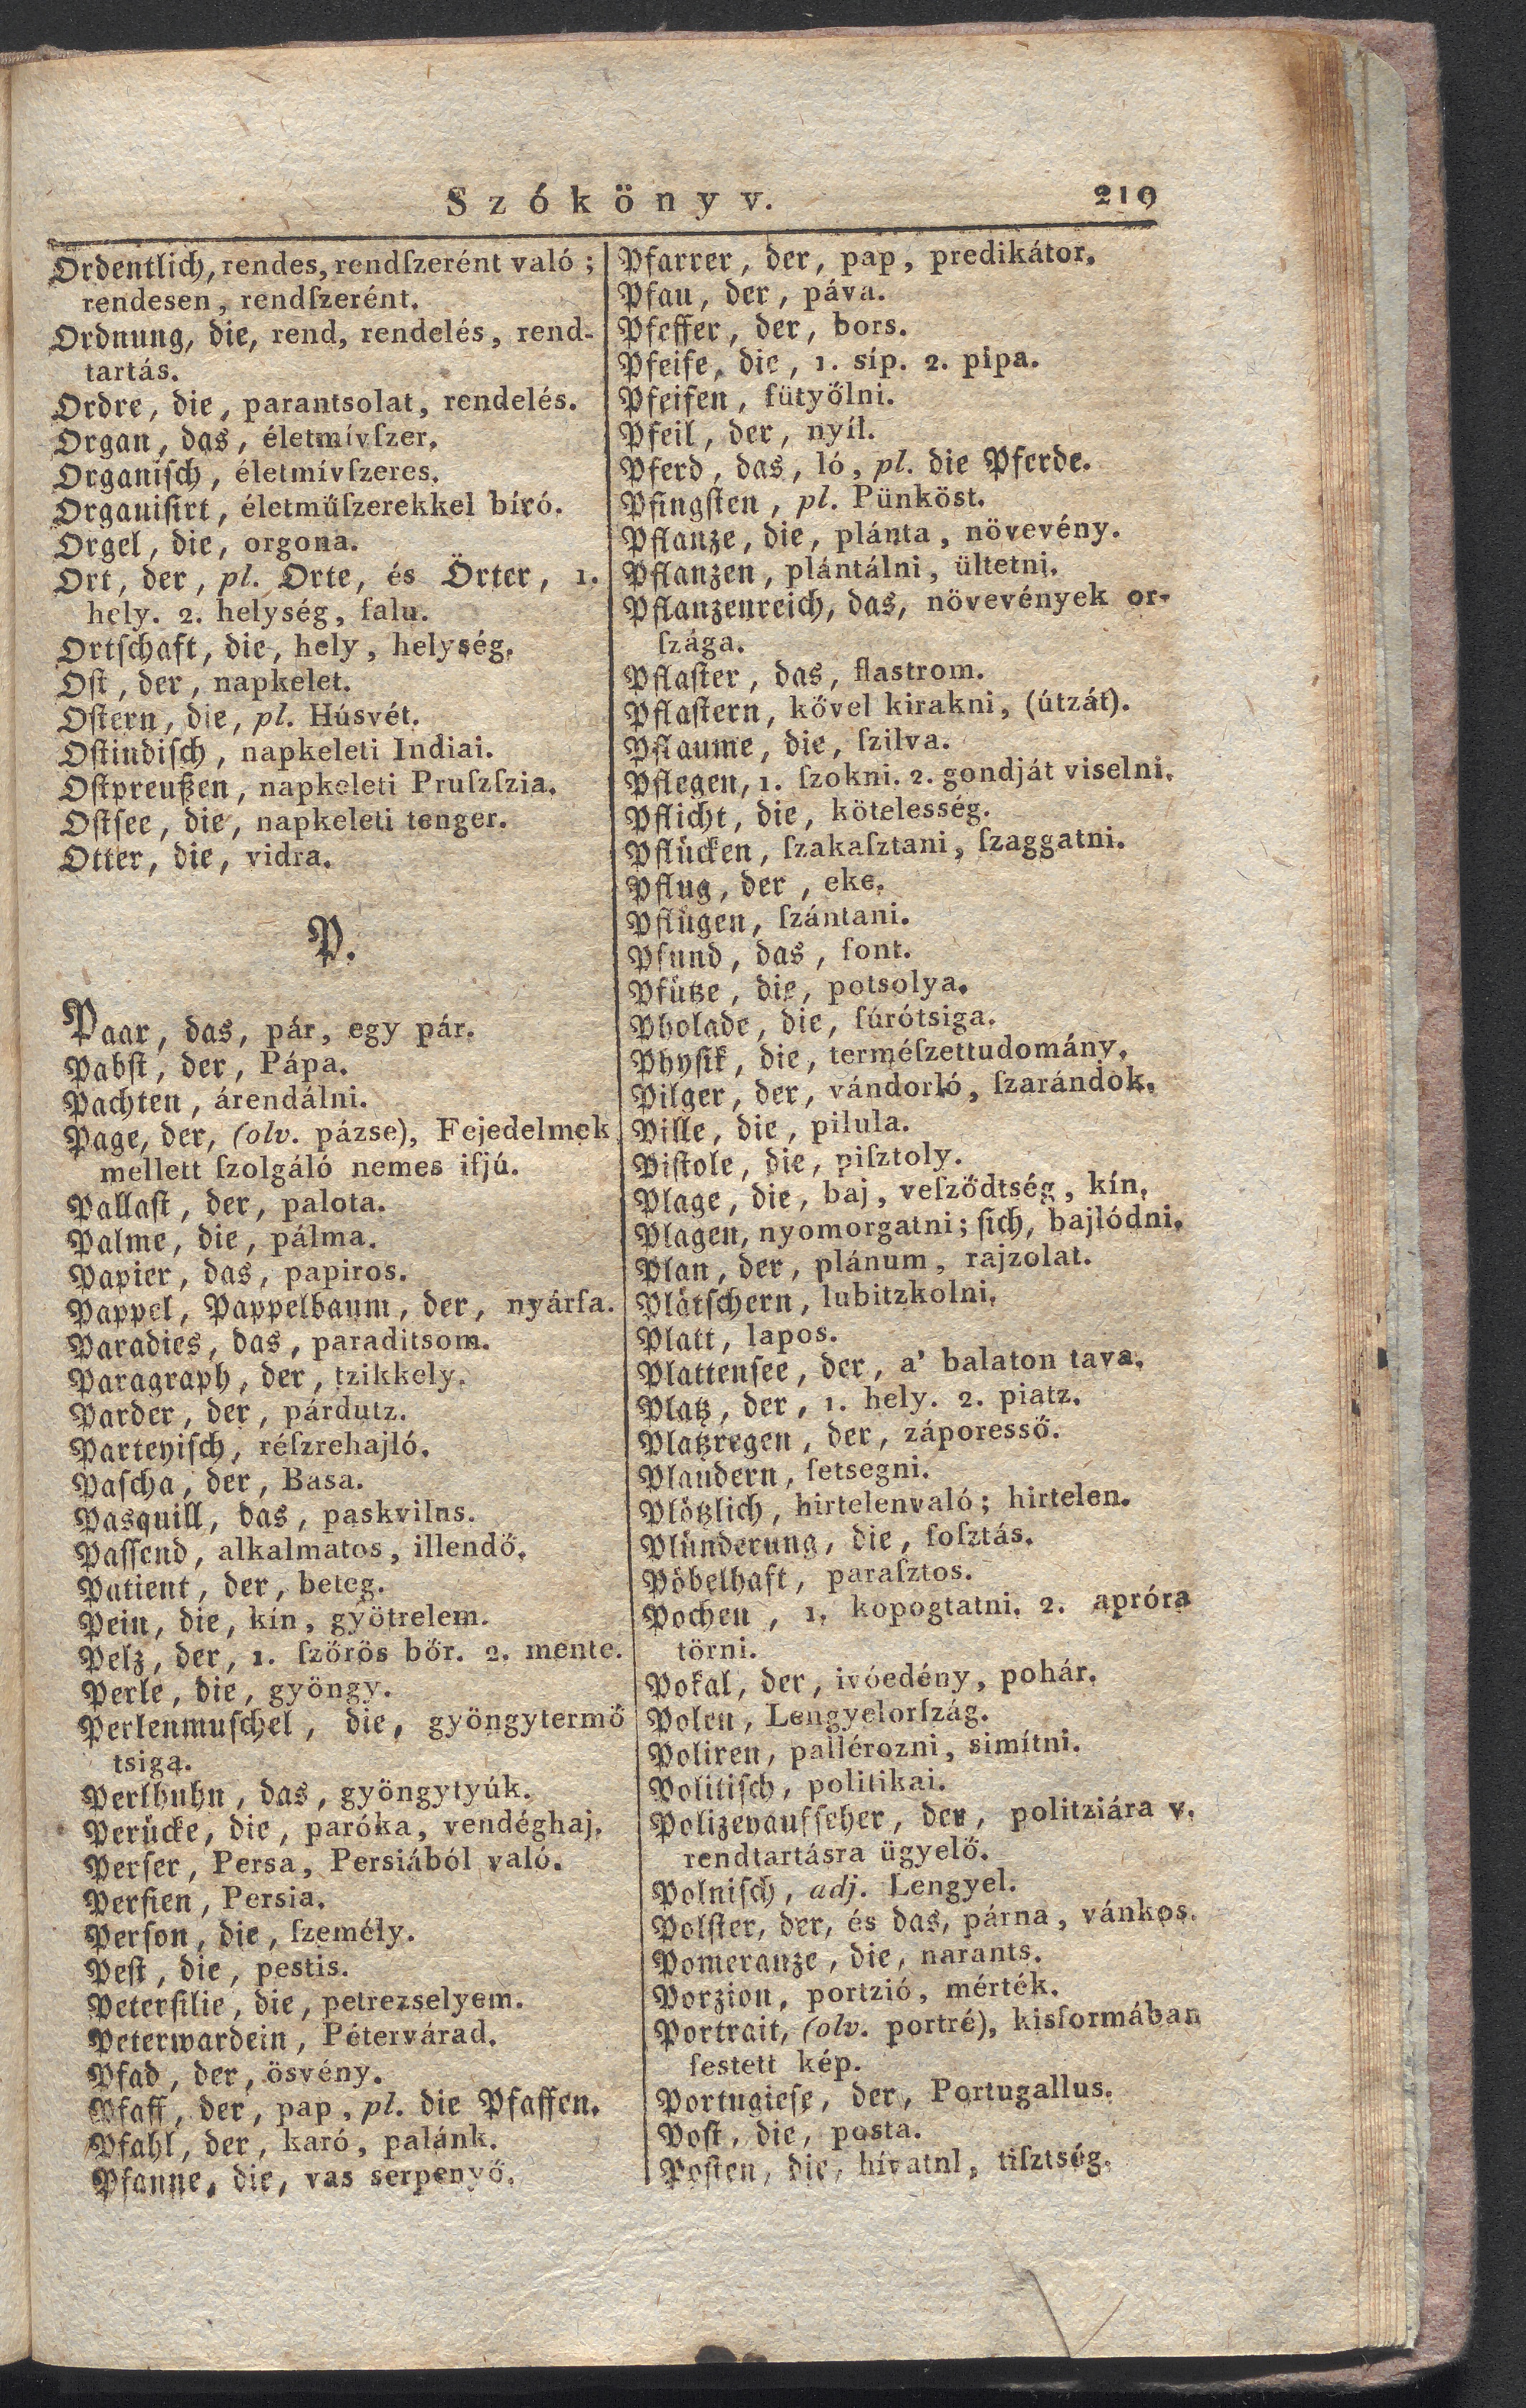 Szókönyv. 219
Ordentlich, rendes, rendſzerént való;
rendesen, rendſzerént.
Ordnung, die, rend, rendelés, rend-
tartás.
Ordre, die, parantsolat, rendelés.
Organ, das, életmívſzer.
Organiſch, életmívſzeres.
Organiſirt, életműſzerekkel bíró.
Orgel, die, orgona.
Ort, der, pl. Orte, és Örter, 1.
hely. 2. helység, falu.
Ortſchaft, die, hely, helység.
Oſt, der, napkelet.
Oſtern, die, pl. Húsvét.
Oſtindiſch, napkeleti Indiai.
Oſtpreußen, napkeleti Pruſzſzia.
Oſtſee, die, napkeleti tenger.
Otter, die, vidra.
P.
Paar, das, pár, egy pár.
Pabſt, der, Pápa.
Pachten, árendálni.
Page, der, (olv. pázse), Fejedelmek
mellett ſzolgáló nemes ifjú.
Pallaſt, der, palota.
Palme, die, pálma.
Papier, das, papiros.
Pappel, Pappelbaum, der, nyárfa.
Paradies, das, paraditsom.
Paragraph, der, tzikkely.
Parder, der, párdutz.
Parteyiſch, réſzrehajló.
Paſcha, der, Basa.
Pasquill, das, paskvilns.
Paſſend, alkalmatos, illendő.
Patient, der, beteg.
Pein, die, kín, gyötrelem.
Pelz, der, 1. ſzőrös bőr. 2. mente.
Perle, die, gyöngy.
Perlenmuſchel, die, gyöngytermő
tsiga.
Perlhuhn, das, gyöngytyúk.
Perücke, die, paróka, vendéghaj.
Perſer, Persa, Persiából való.
Perſien, Persia.
Perſon, die, ſzemély.
Peſt, die, pestis.
Peterſilie, die, petrezselyem.
Peterwardein, Pétervárad.
Pfad, der, ösvény.
Pfaff, der, pap, pl. die Pfaffen.
Pfahl, der, karó, palánk.
Pfanne, die, vas serpenyő.
Pfarrer, der, pap, predikátor.
Pfau, der, páva.
Pfeffer, der, bors.
Pfeife, die, 1. síp. 2. pipa.
Pfeifen, fütyőlni.
Pfeil, der, nyíl.
Pferd, das, ló, pl. die Pferde.
Pfingſten, pl. Pünköst.
Pflanze, die, plánta, növevény.
Pflanzen, plántálni, ültetni.
Pflanzenreich, das, növevények or-
ſzága.
Pflaſter, das, flastrom.
Pflaſtern, kővel kirakni, (útzát).
Pflaume, die, ſzilva.
Pflegen, 1. ſzokni. 2. gondját viselni.
Pflicht, die, kötelesség.
Pflücken, ſzakaſztani, ſzaggatni.
Pflug, der, eke.
Pflügen, ſzántani.
Pfund, das, font.
Pfütze, die, potsolya.
Pholade, die, fúrótsiga.
Phyſik, die, terméſzettudomány.
Pilger, der, vándorló, ſzarándok.
Pille, die, pilula.
Piſtole, die, piſztoly.
Plage, die, baj, veſződtség, kín.
Plagen, nyomorgatni; ſich, bajlódni.
Plan, der, plánum, rajzolat.
Plätſchern, lubitzkolni.
Platt, lapos.
Plattenſee, der, a' balaton tava.
Platz, der, 1. hely. 2. piatz.
Platzregen, der, záporesső.
Plaudern, fetsegni.
Plötzlich, hirtelenvaló; hirtelen.
Plünderung, die, foſztás.
Pöbelhaft, paraſztos.
Pochen, 1. kopogtatni. 2. apróra
törni.
Pokal, der, ivóedény, pohár.
Polen, Lengyelorſzág.
Poliren, pallérozni, simítni.
Politiſch, politikai.
Polizeyaufſeher, der, politziára v.
rendtartásra ügyelő.
Polniſch, adj. Lengyel.
Polſter, der, és das, párna, vánkos.
Pomeranze, die, narants.
Porzion, portzió, mérték.
Portrait, (olv. portré), kisformában
festett kép.
Portugieſe, der, Portugallus.
Poſt, die, posta.
Poſten, die, hívatnl, tiſztség.